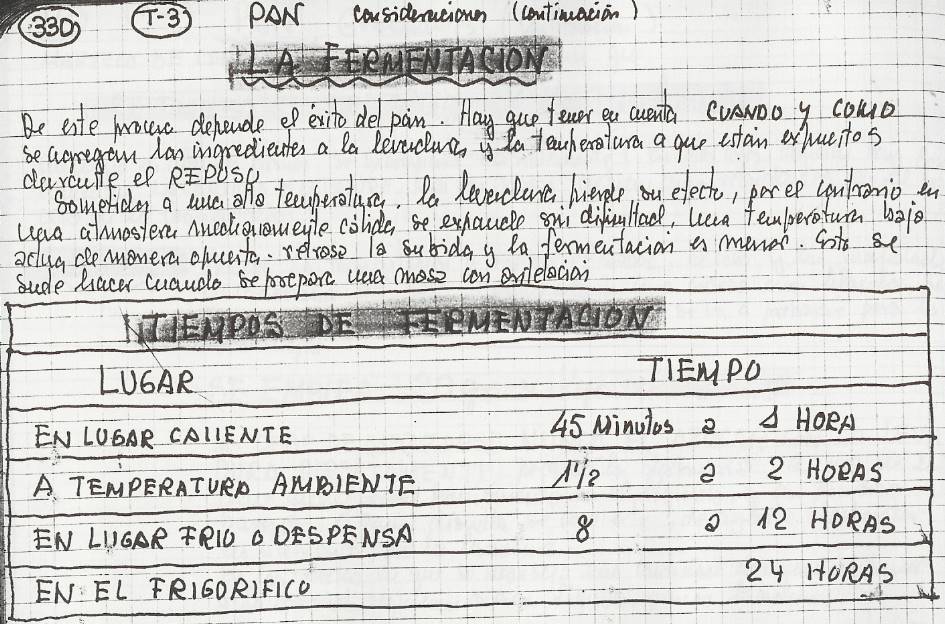 330 T-3 PAN Consideraciones (Continuación)
LA FERMENTACION
De este proceso depende el éxito del pan. Hay que tener en cuenta CUANDO Y COMO
se agregan los ingredientes a la levadura, y la temperatura a que están expuestos
durante el REPOSO
Sometidos a una alta temperatura, la levadura pierde su efecto, por el contrario en
una atmosfera medianamente cálida se expande sin dificultad, una temperatura baja
actua de manera opuesta. retrasa la subida y la fermentación es menor. Esto se
suele hacer cuando se prepara una masa con antelación
TIEMPOS DE FERMENTACION
LUGAR TIEMPO
EN LUGAR CALIENTE 45 Minutos a 1 HORA
A TEMPERATURA AMBIENTE 1 1/2 a 2 HORAS
EN LUGAR FRIO O DESPENSA 8 a 12 HORAS
EN EL FRIGORIFICO 24 HORAS